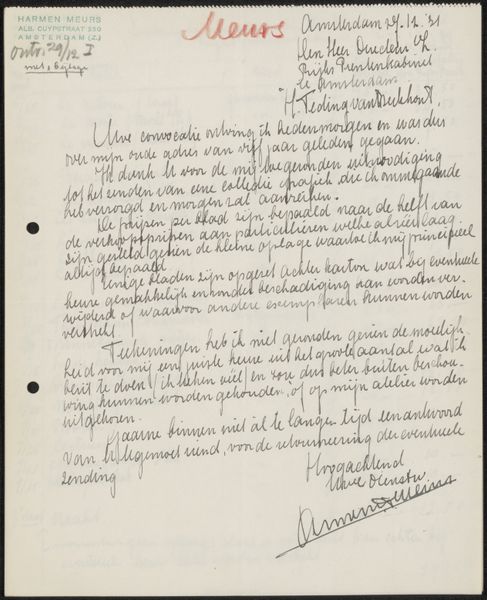 HARMEN MEURS
ALB. CUYPSTRAAT 230
AMSTERDAM (Z.)
ontv. 29/12 I
met 1 bijlage
Meurs
Amsterdam 29.12.31
Den Heer
Rijks Prentenkabinet
te Amsterdam
H. Teding van Berkhout,
Uwe convocatie ontving ik hedenmorgen en was dus
over mijn oude adres van vijf jaar geleden gegaan.
Ik dank U voor de mij toegezonden uitnoodiging
tot het zenden van eene collectie grafiek, die ik omgaande
heb verzorgd en morgen zal aanreiken.
De prijzen per blad zijn bepaald naar de helft van
de verkoopsprijzen aan particulieren welke al zéér laag
zijn gesteld gezien de kleine oplage waartoe ik mij principieel
altijd bepaald.
Eenige bladen zijn opgezet achter karton wat bij eventueele
keuze gemakkelijk en zonder beschadiging kan worden ver-
wijderd of waarvoor andere exemplaren kunnen worden
verstrekt.
Teekeningen heb ik niet gezonden gezien de moeilijk-
heid voor mij een juiste keuze uit het groote aantal wat ik
bezit te doen (ik teken véél) en zou dus beter buiten beschou-
wing kunnen worden gehouden, of op mijn atelier worden
uitgekozen.
Gaarne binnen niet al te langen tijd een antwoord
van U tegemoet ziend, voor de retourneering der eventueele
zending
Hoogachtend
Uwe Dienstw.
Harmen Meurs